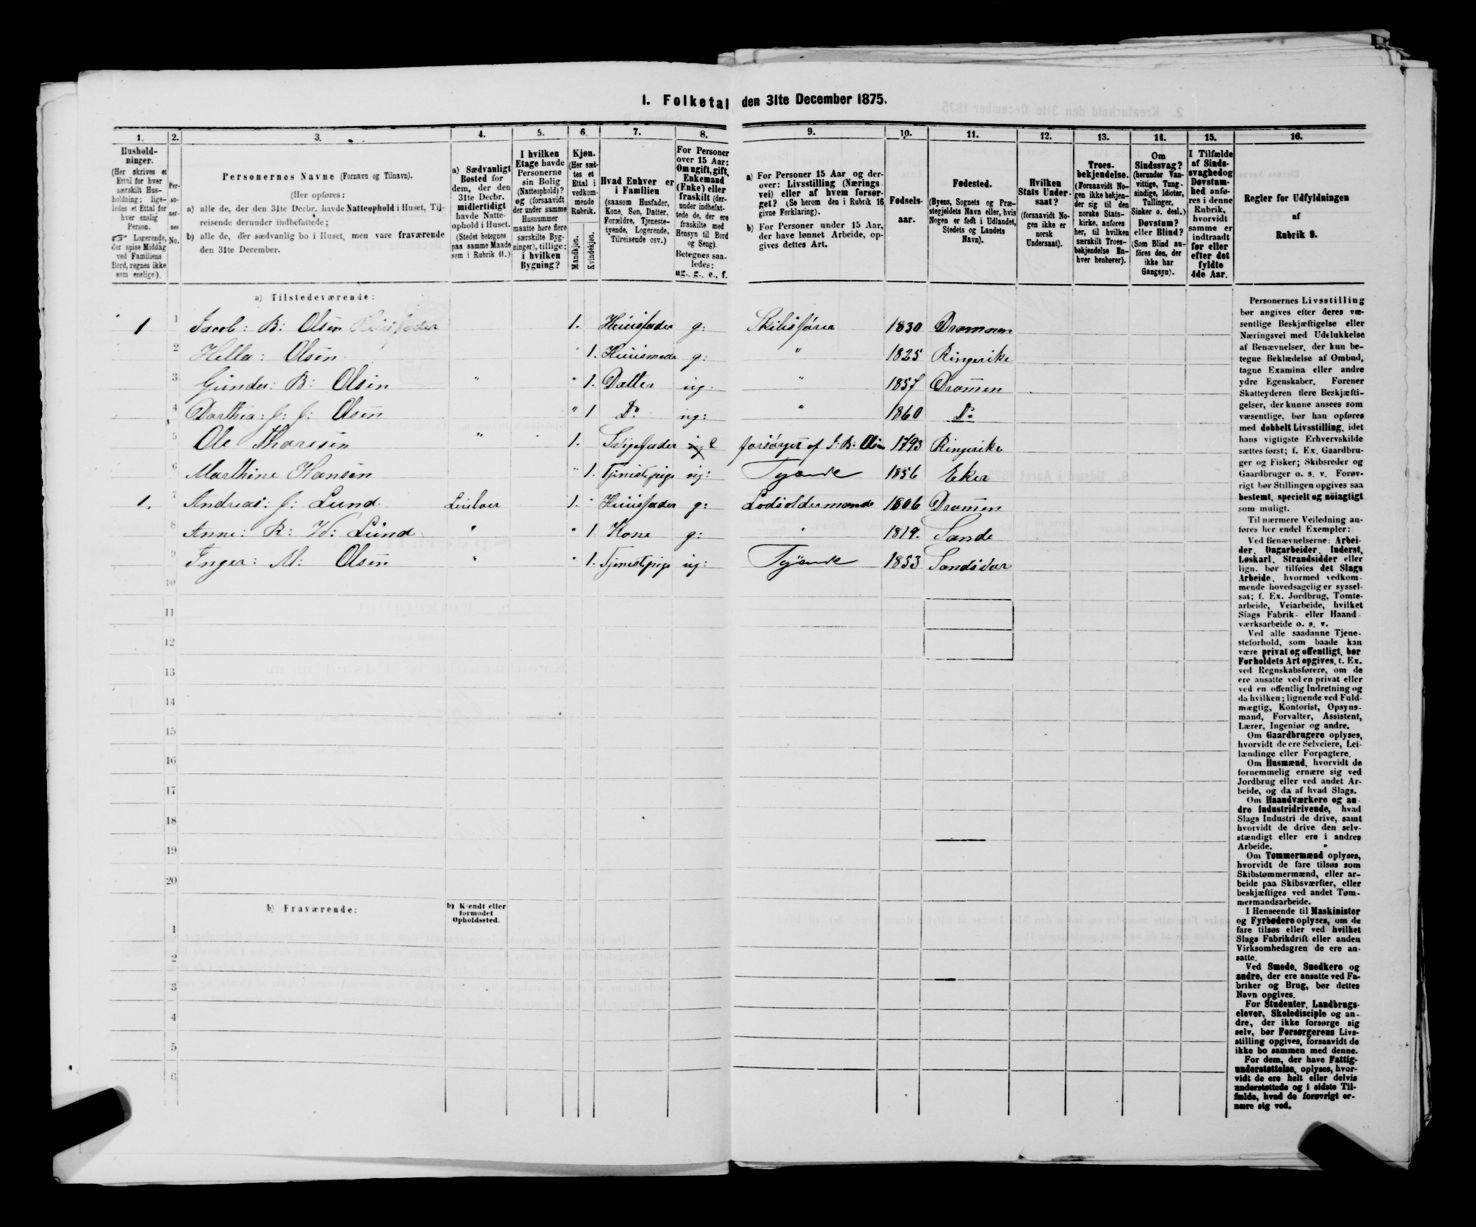 1. Folketal den 31te December 1875.
1. 2. 3. 4. 5. 6. 7. 8. 9. 10. 11. 12. 13. 14. 15. 16.
Hushold-
ninger.
(Her skrives et
Ettal for hver
særskilt Hus-
holdning; lige-
ledes et Ettal for
hver enslig
Person.
☞ Logerende,
der spise Middag
ved Familiens
Bord, regnes ikke
som enslige).
Per-
so-
ner-
nes
No.
Personernes Navne (Fornavn og Tilnavn).
(Her opføres:
a) alle de, der den 31te Decbr. havde Natteophold i Huset, Til-
reisende derunder indbefattede;
b) alle de, der sædvanlig bo i Huset, men vare fraværende
den 31te December.
a) Sædvanligt
Bosted for
dem, der den
31te Decbr.
midlertidigt
havde Natte-
ophold i Huset.
(Stedet betegnes
paa samme Maade
som i Rubrik 11.)
I hvilken
Etage havde
Personerne
sin Bolig
(Natteophold)?
og (forsaavidt
der under samme
Husnummer
maatte høre flere
særskilte Byg-
ninger), tillige:
i hvilken
Bygning?
Kjøn.
(Her sæt-
tes et
Ettal i
vedkom-
mende
Rubrik.
Mandkjøn.
Kvindekjøn.
Hvad Enhver er
i Familien
(saasom Husfader,
Kone, Søn, Datter,
Forældre, Tjeneste-
tyende, Logerende,
Tilreisende osv.)
For Personer
over 15 Aar:
Om ugift, gift,
Enkemand
(Enke) eller
fraskilt (der-
under indbefat-
tede de, der ere
fraskilte med
Hensyn til Bord
og Seng).
Betegnes saa-
ledes:
ug., g., e., f.
a) For Personer 15 Aar og der-
over: Livsstilling (Nærings-
vei) eller af hvem forsør-
get? (Se herom den i Rubrik 16
givne Forklaring).
b) For Personer under 15 Aar,
der have lønnet Arbeide, op-
gives dettes Art.
Fødsels-
aar.
Fødested.
(Byens, Sognets og Præ-
stegjeldets Navn eller, hvis
Nogen er født i Udlandet,
Stedets og Landets
Navn).
Hvilken
Stats Under-
saat?
(forsaavidt No-
gen ikke er
norsk
Undersaat).
Troes-
bekjendelse.
(Forsaavidt No-
gen ikke bekjen-
der sig til den
norske Stats-
kirke, anføres
her, til hvilken
særskilt Troes-
bekjendelse En-
hver henhører).
Om
Sindssvag?
(herunder Van-
vittige, Tung-
sindige, Idioter,
Tullinger,
Sinker o. desl.)
Døvstum?
eller Blind?
(Som Blind an-
føres den, der
ikke har
Gangsyn).
I Tilfælde
af Sinds-
svaghed og
Døvstum-
hed anfø-
res i denne
Rubrik,
hvorvidt
samme er
indtraadt
før eller
efter det
fyldte
4de Aar.
Regler for Udfyldningen
af
Rubrik 9.
a) Tilstedeværende:
1 1 Jacob: B: Olsen Huusfader 1. Huusfader g: Skibsfører 1830 Drammen
2 Hella: Olsen " 1. Huusmode g: " 1825 Ringerike
3 Gunder: B: Olsen " " 1. Datter ug. " 1857 Dramen
4 Dorthea: J: J: Olsen " 1 Do ug: " 1860 Do
5 Ole Thorssen " 1. Svigefader e forsørget af J: B: Olsen 1793 Ringerike
6 Marthine Hansen " 1. Tjenestpige ug: Tyende 1856 Eker
1. 7 Andreas: J: Lund Leilver 1. " Huusfader g: Lodsoldermand 1806 Dramen
8 Anne: R: W: Lund " " 1. Kone g: " 1819. Sande
Inger: M: Olsen " " 1. Tjenestpige ug: Tyende 1853 Sandsvær
10
11
12
13
14
15
16
17
18
19
20
b) Fraværende:
b) Kjendt eller
formodet
Opholdssted.
1
2
3
4
5
6
Personernes Livsstilling
bør angives efter deres væ-
sentlige Beskjæftigelse eller
Næringsvei med Udelukkelse
af Benævnelser, der kun be-
tegne Beklædelse af Ombud,
tagne Examina eller andre
ydre Egenskaber. Forener
Skatteyderen flere Beskjæfti-
gelser, der kunne ansees som
væsentlige, bør han opføres
med dobbelt Livsstilling, idet
hans vigtigste Erhvervskilde
sættes først; f. Ex. Gaardbru-
ger og Fisker; Skibsreder og
Gaardbruger o. s. v. Forøv-
rigt bør Stillingen opgives saa
bestemt, specielt og nöiagtigt
som muligt.
Til nærmere Veiledning an-
føres her endel Exempler:
Ved Benævnelserne: Arbei-
der, Dagarbeider, Inderst,
Løskarl, Strandsidder eller
lign. bør tilføies det Slags
Arbeide, hvormed vedkom-
mende hovedsagelig er syssel-
sat; f. Ex. Jordbrug, Tomte-
arbeide, Veiarbeide, hvilket
Slags Fabrik- eller Haand-
værksarbeide o. s. v.
Ved alle saadanne Tjene-
steforhold, som baade kan
være privat og offentligt, bør
Forholdets Art opgives, t. Ex.
ved Regnskabsførere, om de
ere ansatte ved en privat eller
ved en offentlig Indretning og
da hvilken; lignende ved Fuld-
mægtig, Kontorist, Opsyns-
mand, Forvalter, Assistent,
Lærer, Ingeniør og andre.
Om Gaardbrugere oplyses,
hvorvidt de ere Selveiere, Lei-
lændinge eller Forpagtere.
Om Husmænd, hvorvidt de
fornemmelig ernære sig ved
Jordbrug eller ved andet Ar-
beide, og da af hvad Slags.
Om Haandværkere og an-
dre Industridrivende, hvad
Slags Industri de drive, samt
hvorvidt de drive den selv-
stændigt eller ere i andres
Arbeide.
Om Tømmermænd oplyses,
hvorvidt de fare tilsøs som
Skibstømmermænd, eller ar-
beide paa Skibsværfter, eller
beskjæftiges ved andet Tøm-
mermandsarbeide.
I Henseende til Maskinister
og Fyrbødere oplyses, om de
fare tilsøs eller ved hvilket
Slags Fabrikdrift eller anden
Virksomhedsgren de ere an-
satte.
Ved Smede, Snedkere og
andre, der ere ansatte ved Fa-
briker og Brug, bør dettes
Navn opgives.
For Studenter, Landbrugs-
elever, Skoledisciple og an-
dre, der ikke forsørge sig
selv, bør Forsørgerens Livs-
stilling opgives, forsaavidt de
ikke bo sammen med denne.
For dem, der have Fattig-
understøttelse, oplyses, hvor-
vidt de ere helt eller delvis
understøttede og i sidste Til-
fælde, hvad de forøvrigt er-
nære sig ved.